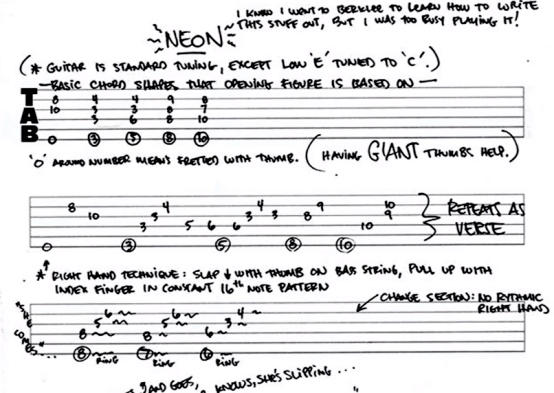 I KNOW I WENT TO BERKLEE TO LEARN HOW TO WRITE
THIS STUFF OUT, BUT I WAS TOO BUSY PLAYING IT!
~NEON~
(* GUITAR IS STANDARD TUNING, EXCEPT LOW 'E' TUNED TO 'C'.)
— BASIC CHORD SHAPES THAT OPENING FIGURE IS BASED ON —
TAB
8 4 4 9 8
10 3 3 8 7
3 6 8 10
0 3 5 8 10
'O' AROUND NUMBER MEANS FRETTED WITH THUMB. (HAVING GIANT THUMBS HELP.)
8 4 4 9 10
10 3 3 3 8 9
3 5 6 6 10
0 3 5 8 10
REPEATS AS
VERSE
* RIGHT HAND TECHNIQUE: SLAP ↓ WITH THUMB ON BASS STRING, PULL UP WITH
INDEX FINGER IN CONSTANT 16th NOTE PATTERN
CHANGE SECTION: NO RYTHMIC
RIGHT HAND
"SHE
COMES"...
6 6 4
5 5 3
8 8 6
8 7 6
RING RING RING
AND GOES,
KNOWS, SHE'S SLIPPING ...